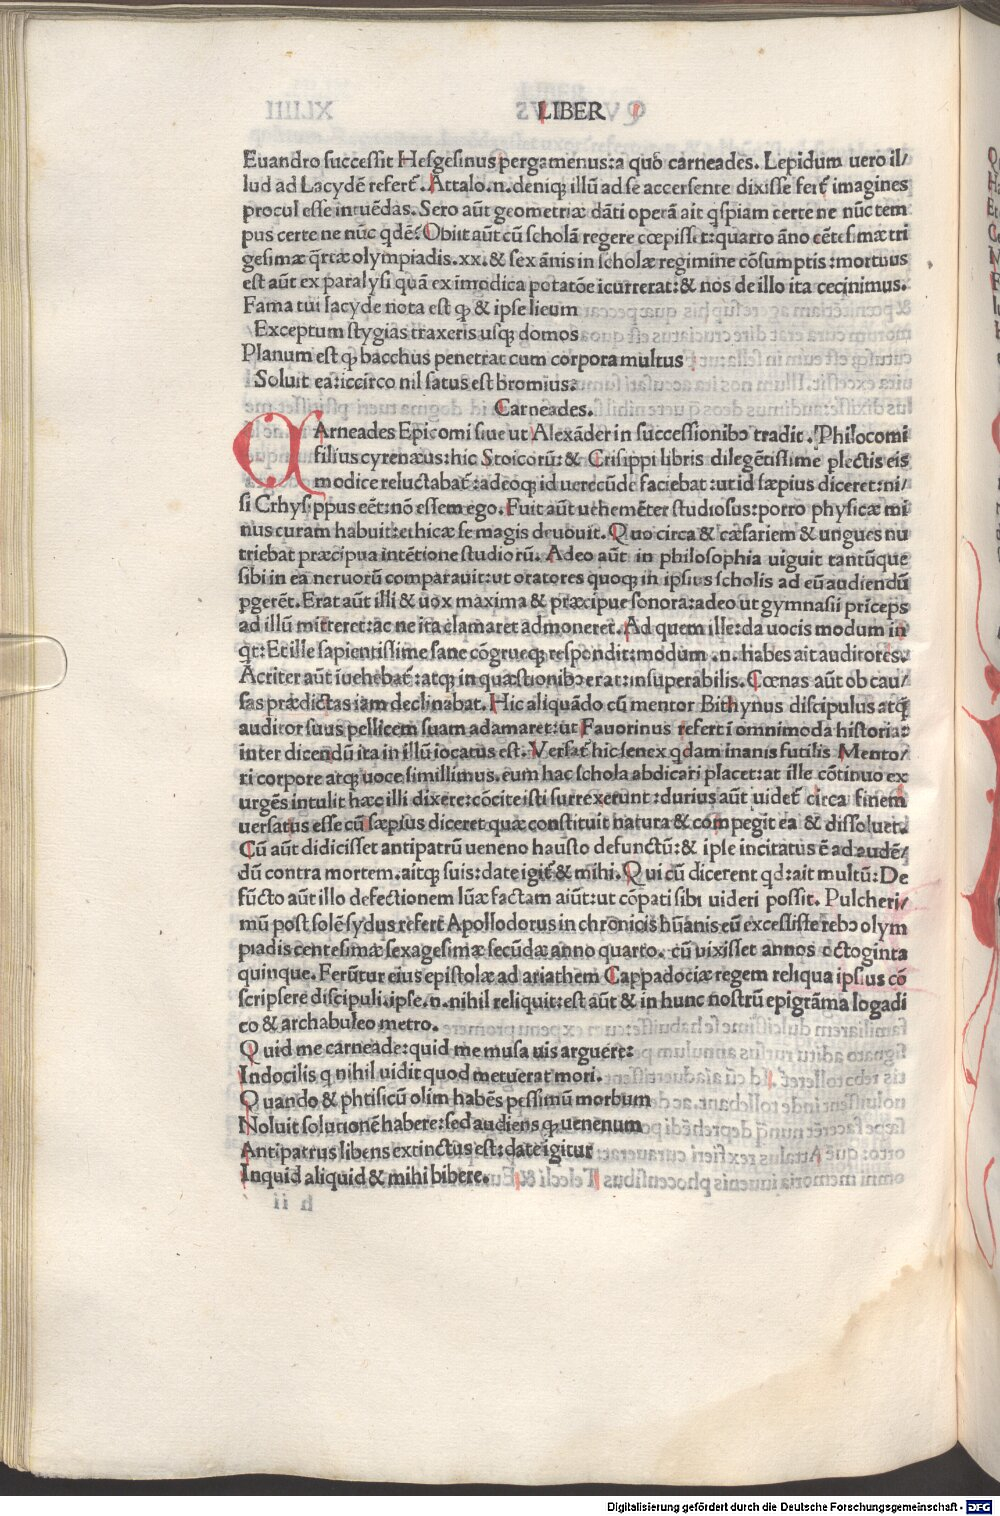 LIBER
Euandro successit Hesgesinus pergamenus:a quo carneades. Lepidum uero il/
lud ad Lacydē refert̄. Attalo.n.deniqꝫ illū ad se accersente dixisse fert̄ imagines
procul esse intuēdas. Sero aūt geometriæ dāti operā ait qspiam certe ne nūc tem
pus certe ne nūc qdē? Obiit aūt cū scholā regere cœpisset:quarto āno cētesimæ tri
gesimæ q̄rtæ olympiadis.xx.& sex ānis in scholæ regimine cōsumptis:mortuus
est aūt ex paralysi quā ex imodica potatōe icurrerat:& nos de illo ita cecinimus.
Fama tui lacyde nota est qꝫ & ipse lieum
Exceptum stygias traxeris usqꝫ domos
Planum est qꝫ bacchus penetrat cum corpora multus
Soluit ea:iccirco nil satus est bromius:
Carneades.
CArneades Epicomi siue ut Alexāder in successionibꝰ tradit. Philocomi
filius cyrenæus:hic Stoicorū:& Crisippi libris diligētissime plectis eis
modice reluctabat̄:adeoqꝫ id uerecūde faciebat:ut id sæpius diceret:ni/
si Crhysippus eēt:nō essem ego. Fuit aūt uehemēter studiosus:porro physicæ mi
nus curam habuit:ethicæ se magis deuouit. Quo circa & cæsariem & ungues nu
triebat præcipua intētione studiorū. Adeo aūt in philosophia uiguit tantūque
sibi in ea neruorū comparauit:ut oratores quoqꝫ in ipsius scholis ad eū audiendū
pgerēt. Erat aūt illi & uox maxima & præcipue sonora:adeo ut gymnasii prīceps
ad illū mitteret:ac ne ita clamaret admoneret. Ad quem ille:da uocis modum in
qt: Et ille sapientissime sane cōgrueqꝫ respondit:modum .n. habes ait auditores.
Acriter aūt iuehebat̄:atqꝫ in quæstionibꝰ erat:insuperabilis. Cœnas aūt ob cau/
sas prædictas iam declinabat. Hic aliquādo cū mentor Bithynus discipulus atqꝫ
auditor suus pellicem suam adamaret:ut Fauorinus refert ī omnimoda historia:
inter dicendū ita in illū iocatus est. Versat̄ hic senex qdam inanis futilis Mento/
ri corpore atqꝫ uoce simillimus. eum hac schola abdicari placet:at ille cōtinuo ex
urgēs intulit hæc illi dixere:cōcite isti surrexerunt:durius aūt uidet̄ circa finem
uersatus esse cū sæpius diceret quæ constituit natura & compegit ea & dissoluet.
Cū aūt didicisset antipatrū ueneno hausto defunctū:& ipse incitatus ē ad audē/
dū contra mortem.aitqꝫ suis:date igit̄ & mihi. Qui cū dicerent qd:ait multū: De
fūcto aūt illo defectionem lūæ factam aiūt:ut cōpati sibi uideri possit. Pulcheri/
mū post solē sydus refert Apollodorus in chronicis hūanis eū excessisse rebꝰ olym
piadis centesimæ sexagesimæ secūdæ anno quarto. cū uixisset annos octoginta
quinque. Ferūtur eius epistolæ ad ariathem Cappadociæ regem reliqua ipsius cō
scripsere discipuli.ipse.n.nihil reliquit:est aūt & in hunc nostrū epigrāma logadi
co & archabuleo metro.
Quid me carneade:quid me musa uis arguere:
Indocilis q nihil uidit quod metuerat mori.
Quando & phtisicū olim habēs pessimū morbum
Noluit solutionē habere:sed audiens qꝫ uenenum
Antipatrus libens extinctus est:date igitur
Inquid aliquid & mihi bibere.
Digitalisierung gefördert durch die Deutsche Forschungsgemeinschaft - DFG